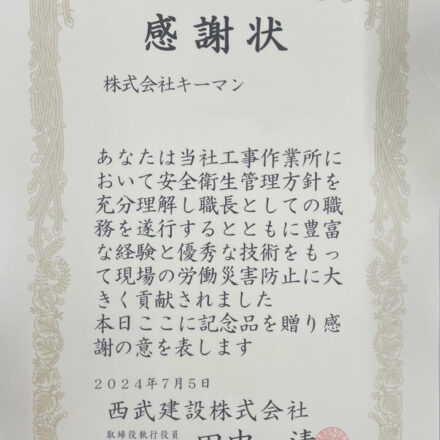 感謝状
株式会社キーマン
あなたは当社工事作業所に
おいて安全衛生管理方針を
充分理解し職長としての職
務を遂行するとともに豊富
な経験と優秀な技術をもっ
て現場の労働災害防止に大
きく貢献されました
本日ここに記念品を贈り感
謝の意を表します
2024年7月5日
西武建設株式会社
取締役執行役員